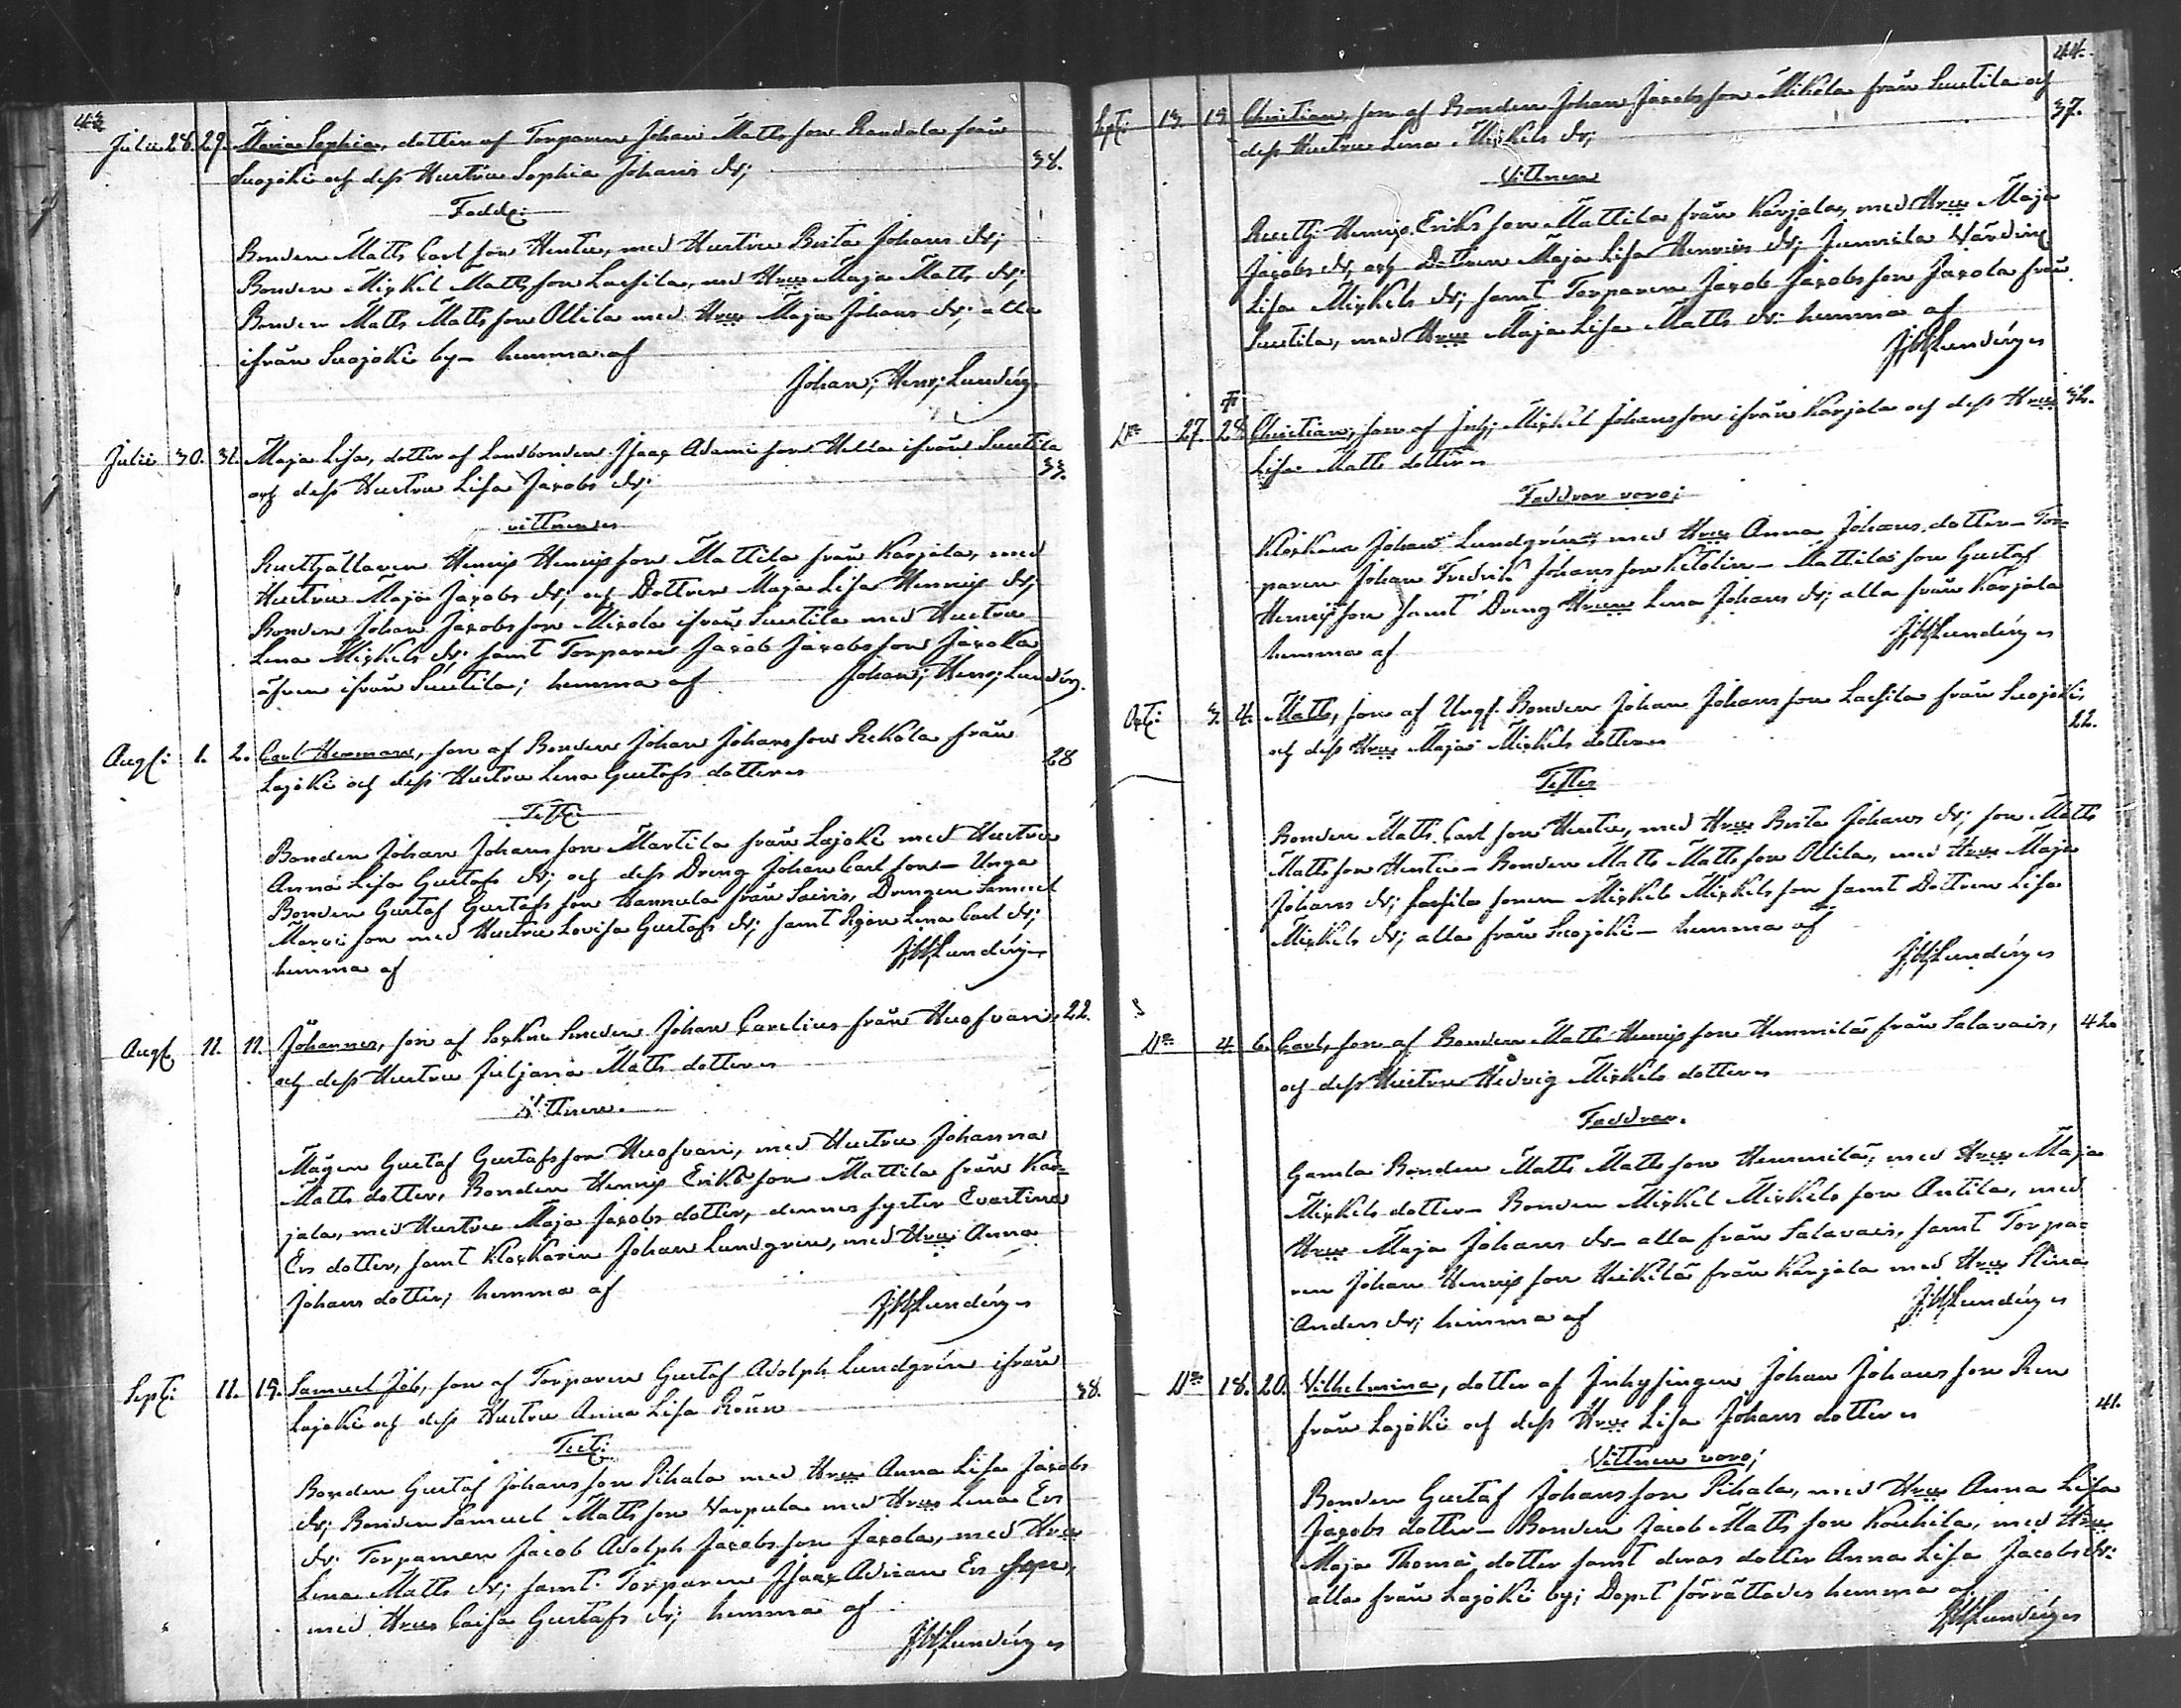 43
Julii 28. 29. Maria Sophia, dotter af Torparen Johan Mattsson Randala från
Suojoki och dess Hustru Sophia Johans dr; 38.
Fadd:
Bonden Matts Carlsson Hentu, med Hustru Brita Johans dr;
Bonden Michel Mattsson Lassila, med Hru Maja Matts dr;
Bonden Matts Mattsson Ollila med Hru Maja Johans dr; alla
ifrån Suojoki by – hemma af
Johan; Henr; Lundén
Julii 30. 31. Maja Lisa, dotter af Landbonden Isaac Adamsson Hella ifrån Suutila
och dess Hustru Lisa Jacobs dr; 33.
vittnen
Rusthållaren Henric Henricsson Mattila från Karjala, med
Hustru Maja Jacobs dr; och Dottren Maja Lisa Henrics dr;
Bonden Johan Jacobsson Mikola ifrån Suutila med Hustru
Lena Michels dr; samt Torparen Jacob Jacobsson Jacola
äfven ifrån Suutila; hemma af Johan; Henr; Lundén.
Aug: 1. 2. Carl Herman, son af Bonden Johan Johansson Rekola från
Lajoki och dess Hustru Lena Gustafs dotter 28
Test:
Bonden Johan Johansson Martila från Lajoki med Hustru
Anna Lisa Gustafs dr; och dess Dreng Johan Carlsson – Unga
Bonden Gustaf Gustafsson Hannula från Sairis, Drengen Samuel
Marcisson med Hustru Lovisa Gustafs dr; samt Pigan Lena Carls dr;
hemma af JHLundén
Aug: 11. 11. Johannes, son af Sockne Smeden Johan Carelius från Huofvari, 22.
och dess Hustru Juljana Matts dotter
Vittnen.
Mågen Gustaf Gustafsson Huofvari, med Hustru Johanna
Matts dotter, Bonden Henric Eriksson Mattila från Kar-
jala, med Hustru Maja Jacobs dotter, dennes syster Evastina
Ers dotter, samt Klockarin Johan Lundgren, med Hru Anna
Johans dotter; hemma af
JHLundén
Sept: 11. 15. Samuel Job, son af Torparen Gustaf Adolph Lundgrén ifrån
Lajoki och dess Hustru Anna Lisa 38.
Test:
Bonden Gustaf Johansson Pihala med Hru Anna Lisa Jacobs
dr; Bonden Samuel Mattsson Varpula med Hru Lena Ers
dr; Torparen Jacob Adolph Jacobsson Jacola, med Hru
Lena Matts dr; samt Torparen Isaac Adrian Ers Sepe,
med Hru Caisa Gustafs dr; hemma af
JHLundén
44.
Sept: 13. 15. Christian, son af Bonden Johan Jacobsson Mikola från Suutila och
dess Hustru Lena Michels dr; 37.
Vittnen
Rusth; Henric Eriksson Mattila från Karjala, med Hru Maja
Jacobs dr, och Dottren Maja Lisa Henrics dr; Junnila Värdin
Lisa Michels dr; samt Torparen Jacob Jacobsson Jacola från
Suutila, med Hru Maja Lisa Matts dr. hemma af
JHLundén
Do 27. 28. Christian, son af Inh; Michel Johansson ifrån Karjala och dess Hru 32.
Lisa Matts dotter
Faddrar voro;
Klockarn Johan Lundgrén, med Hru Anna Johans dotter – Tor-
paren Johan Fredrik Johansson Ketolin – Mattila son Gustaf
Henricsson samt Dreng Hrun Lena Johans dr; alla från Karjala
hemma af JHLundén
Oct: 3. 4. Matts, son af Ungf. Bonden Johan Johansson Lassila från Suojoki,
och dess Hru Maja Michels dotter 22.
Testes
Bonden Matts Carlsson Hentu, med Hru Brita Johans dr; son Matts
Mattsson Hentu – Bonden Matts Mattsson Ollila, med Hru Maja
Johans dr; Lassila sonen Michel Michelsson samt Dottren Lisa
Michels dr; alla från Suojoki – hemma af
JHLundén
Do 4. 6. Carl, son af Bonden Matts Henricsson Hemmilä från Salavais, 42.
och dess Hustru Hedvig Michels dotter
Faddrar.
Gamla Bonden Matts Mattsson Hemmilä, med Hru Maja
Michels dotter – Bonden Michel Michelsson Antila, med
Hru Maja Johans dr – alla från Salavais, samt Torpa-
ren Johan Henricsson Heikilä från Karjala med Hru Stina
Anders dr; hemma af JHLundén
Do 18. 20. Vilhelmina, dotter af Inhysingen Johan Johansson Ren
från Lajoki och dess Hru Lisa Johans dotter 41.
Vittnen voro;
Bonden Gustaf Johansson Pihala, med Hru Anna Lisa
Jacobs dotter – Bonden Jacob Mattsson Kouhila, med Hru
Maja Thomæ dotter samt deras dotter Anna Lisa Jacobs dr:
alla från Lajoki by; Dopet förrättades hemma af
JHLundén